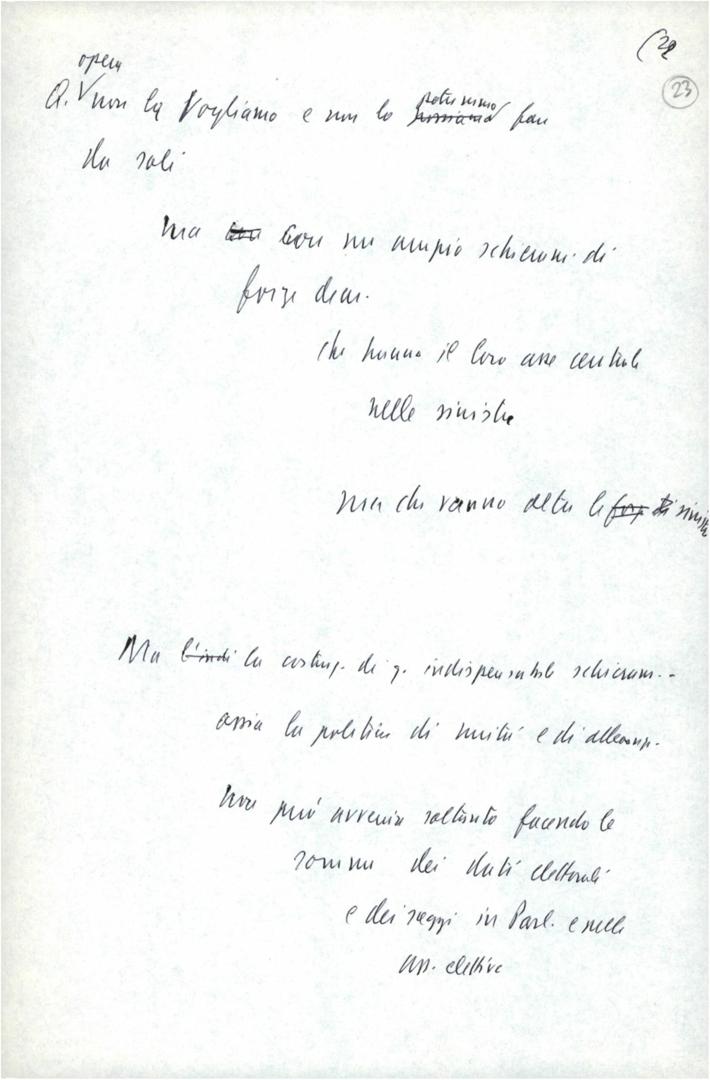 (22
23
opera
Q. non la vogliamo e non lo potremmo possiamo fare
da soli
ma con con un ampio schieram. di
forze dem.
che hanno il loro asse centrale
nelle sinistre
ma che vanno oltre le forze di sinistra
Ma l'indi la costruz. di q. indispensabile schieram. -
ossia la politica di unità e di alleanze.
non può avvenire soltanto facendo le
somme dei dati elettorali
e dei seggi in Parl. e nelle
ass. elettive